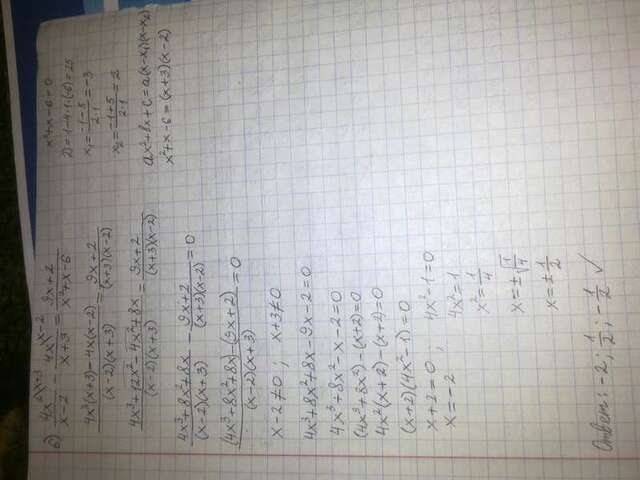 б) 4x²\x+3 / (x-2) - 4x\x-2 / (x+3) = (9x+2)/(x²+x-6)
(4x²(x+3)-4x(x-2))/((x-2)(x+3)) = (9x+2)/((x+3)(x-2))
(4x³+12x²-4x²+8x)/((x-2)(x+3)) = (9x+2)/((x+3)(x-2))
(4x³+8x²+8x)/((x-2)(x+3)) - (9x+2)/((x+3)(x-2)) = 0
((4x³+8x²+8x)-(9x+2))/((x-2)(x+3)) = 0
x-2≠0 ; x+3≠0
4x³+8x²+8x-9x-2=0
4x³+8x²-x-2=0
(4x³+8x²)-(x+2)=0
4x²(x+2)-(x+2)=0
(x+2)(4x²-1)=0
x+2=0 ; 4x²-1=0
x=-2 4x²=1
x²=1/4
x=±√(1/4)
x=±1/2
Ответ: -2; 1/2; -1/2 ✓
x²+x-6=0
D=1-4·1·(-6)=25
x₁=(-1-5)/(2·1)=-3
x₂=(-1+5)/(2·1)=2
ax²+bx+c=a(x-x₁)(x-x₂)
x²+x-6=(x+3)(x-2)